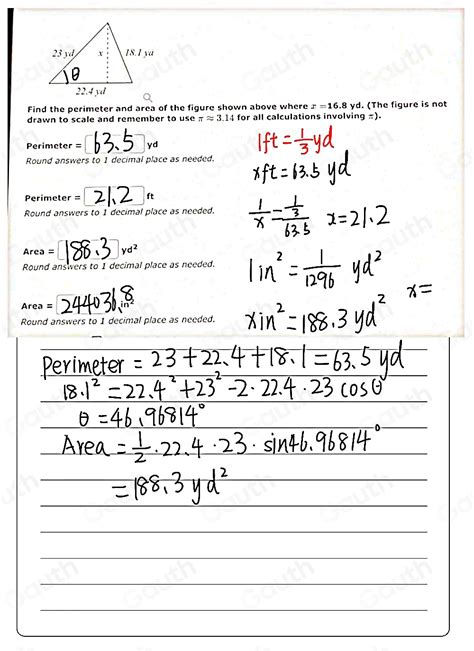 23 yd x 18.1 yd
θ
22.4 yd
Find the perimeter and area of the figure shown above where x = 16.8 yd. (The figure is not
drawn to scale and remember to use π ≈ 3.14 for all calculations involving π).
Perimeter = 63.5 yd
Round answers to 1 decimal place as needed.
Perimeter = 21.2 ft
Round answers to 1 decimal place as needed.
Area = 188.3 yd²
Round answers to 1 decimal place as needed.
Area = 244036.8 in²
Round answers to 1 decimal place as needed.
1ft = 1/3 yd
xft = 63.5 yd
1/x = 1/3/63.5 x = 21.2
1in² = 1/1296 yd²
xin² = 188.3 yd² x =
Perimeter = 23 + 22.4 + 18.1 = 63.5 yd
18.1² = 22.4² + 23² - 2 · 22.4 · 23 cos θ
θ = 46.96814°
Area = 1/2 · 22.4 · 23 · sin 46.96814°
= 188.3 yd²
Gauth